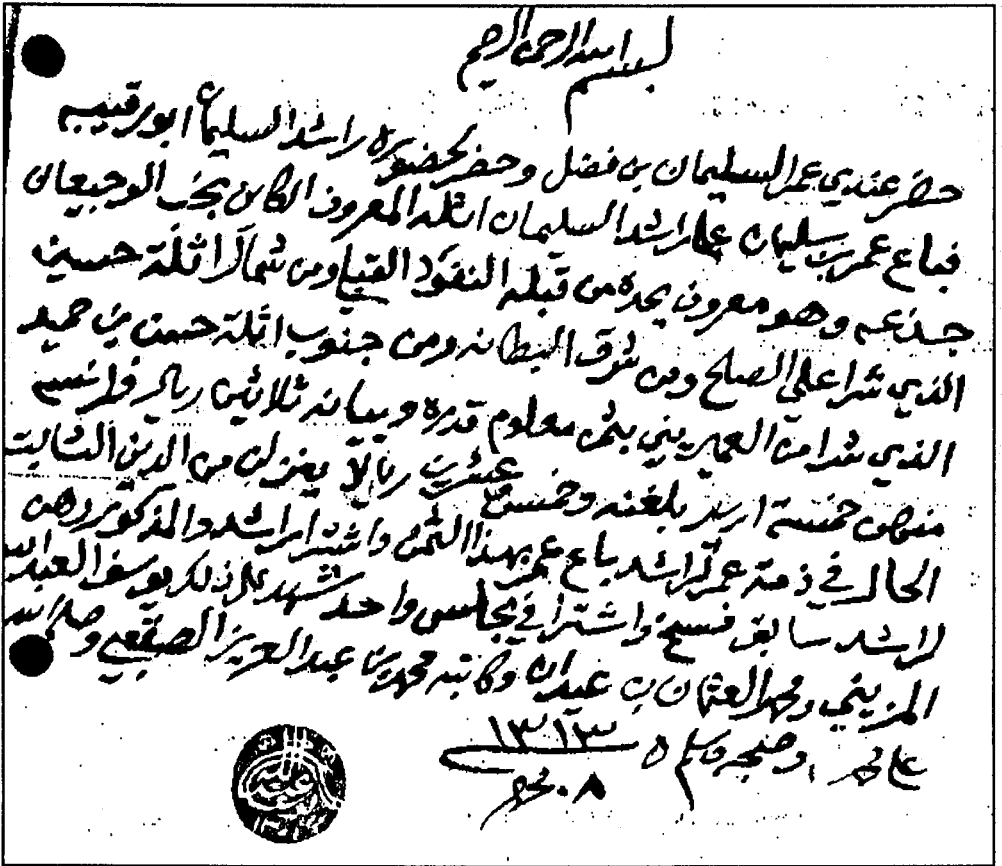 بسم الله الرحمن الرحيم
حضر عندي عمر السليمان بن فضل وحضر لحضوره راشد السليمان ابورقيبه
فباع عمر بن سليمان على راشد السليمان اثله المعروف الكاين بخب الوجيعان
جذعه وهو معروف يحده من قبله النفود ومن شمال اثلة حسين
الذي شرا على الصلح ومن شرق البطانه ومن جنوب اثلة حسن بن حميد
الذي شرا من العميريني بثمن معلوم قدره وبيانه ثلاثين ريالر فرانسه
منهن خمسة اريل بلغنه وخمس عشرين ريالا يعنزلن من الدين الثابت
الحال في ذمة عمر لراشد باع عمر بهذا الثمن واشترا راشد والمذكور رهن
لراشد سابق فسخ واشترا في مجلس واحد شهد على ذلك يوسف العبدالله
المزيني ومحمد العثمان بن عيدان وكاتبه محمد بن عبدالعزيز الصقعبي وصلى الله
على محمد وصحبه وسلم ١٣١٣
٨ محرم